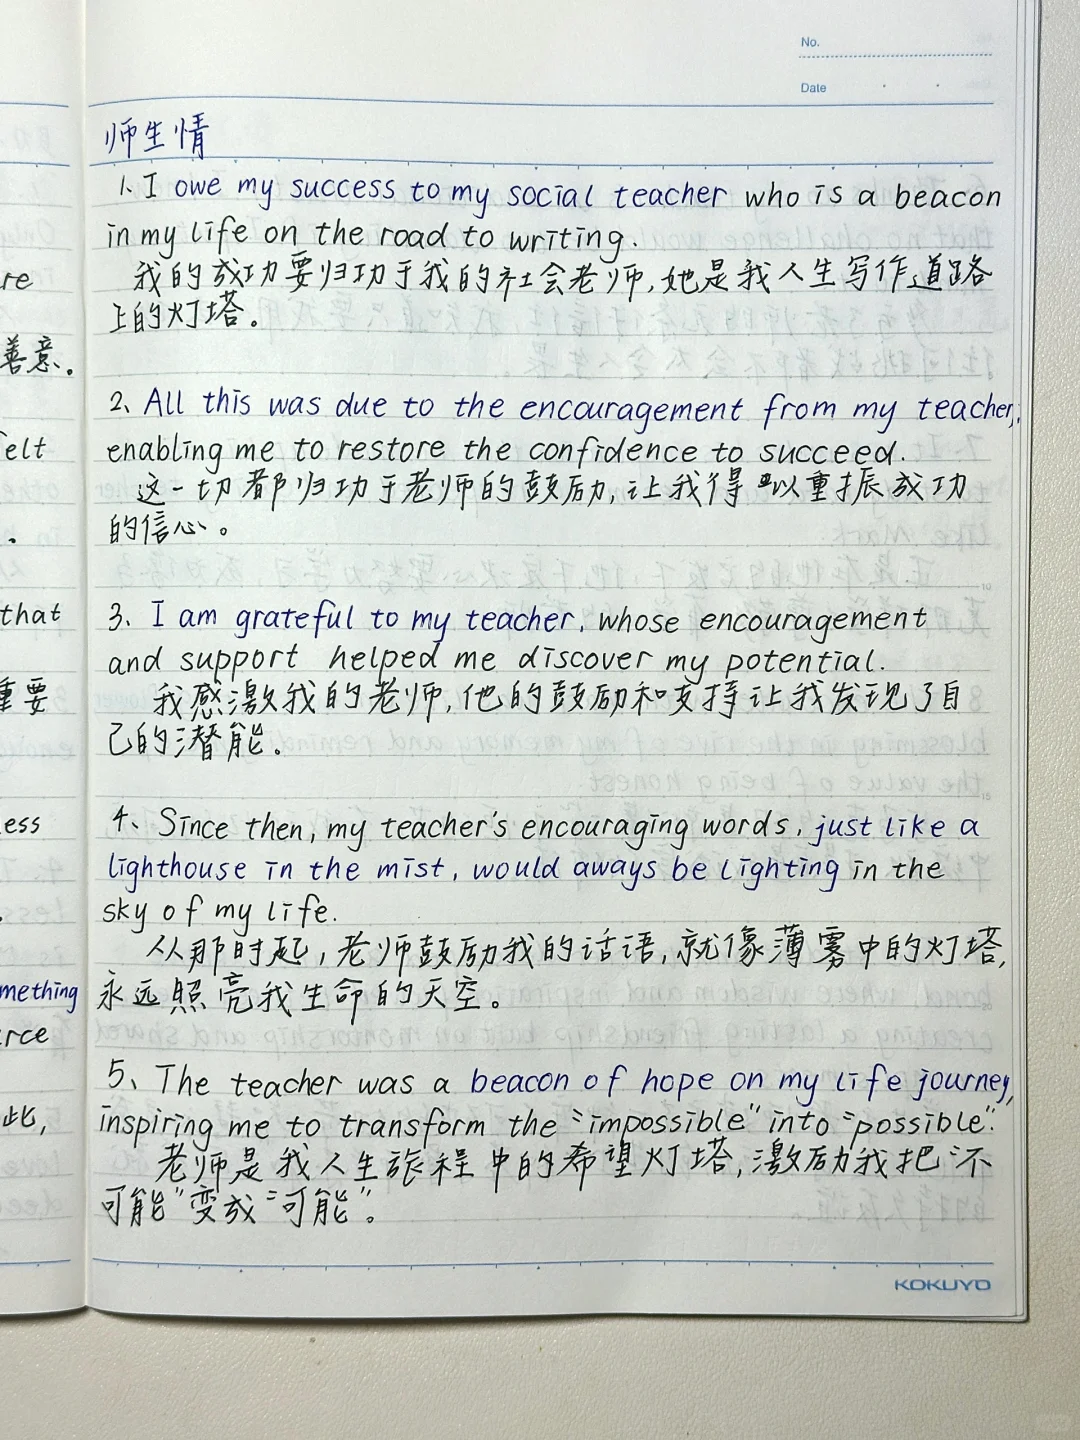 No.
Date
师生情
1、I owe my success to my social teacher who is a beacon
in my life on the road to writing.
我的成功要归功于我的社会老师,她是我人生写作道路
上的灯塔。
2、All this was due to the encouragement from my teacher,
enabling me to restore the confidence to succeed.
这一切都归功于老师的鼓励,让我得以重振成功
的信心。
3、I am grateful to my teacher, whose encouragement
and support helped me discover my potential.
我感激我的老师,他的鼓励和支持让我发现了自
己的潜能。
4、Since then, my teacher's encouraging words, just like a
lighthouse in the mist, would aways be lighting in the
sky of my life.
从那时起,老师鼓励我的话语,就像薄雾中的灯塔,
永远照亮我生命的天空。
5、The teacher was a beacon of hope on my life journey,
inspiring me to transform the "impossible" into "possible".
老师是我人生旅程中的希望灯塔,激励我把"不
可能"变成"可能"。
KOKUYO
re
善意.
felt
that
重要
ess
mething
rce
此,